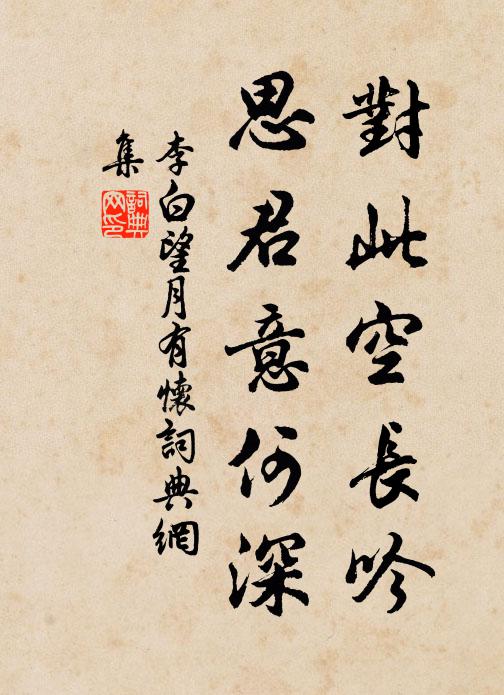 對此空長吟
思君意何深
李白望月有懷詞典網
集
詞典網印